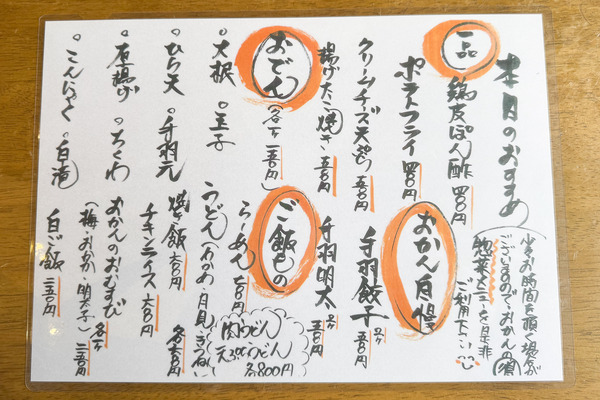 本日のおすすめ
少々お時間を頂く場合が
ございますので、おかんの
惣菜メニューを是非
ご利用下さい
一品
鶏皮ぽん酢 四〇〇円
ポテトフライ 四〇〇円
クリームチーズ天ぷら 五〇〇円
揚げたこ焼き 五〇〇円
おかん自慢
手羽餃子 2ヶ 五〇〇円
手羽明太 2ヶ 五〇〇円
おでん
(各一ヶ 一五〇円)
大根
玉子
ひら天
手羽元
厚揚げ
ちくわ
こんにゃく
白滝
ご飯もの
らーめん 七〇〇円
うどん(わかめ・月見・きつね)
各六〇〇円
肉うどん
天ぷらうどん
各800円
焼き飯 七〇〇円
チキンライス 七〇〇円
おかんのおむすび
(梅・おかか・明太子) 各一ヶ 二五〇円
白ご飯 二五〇円